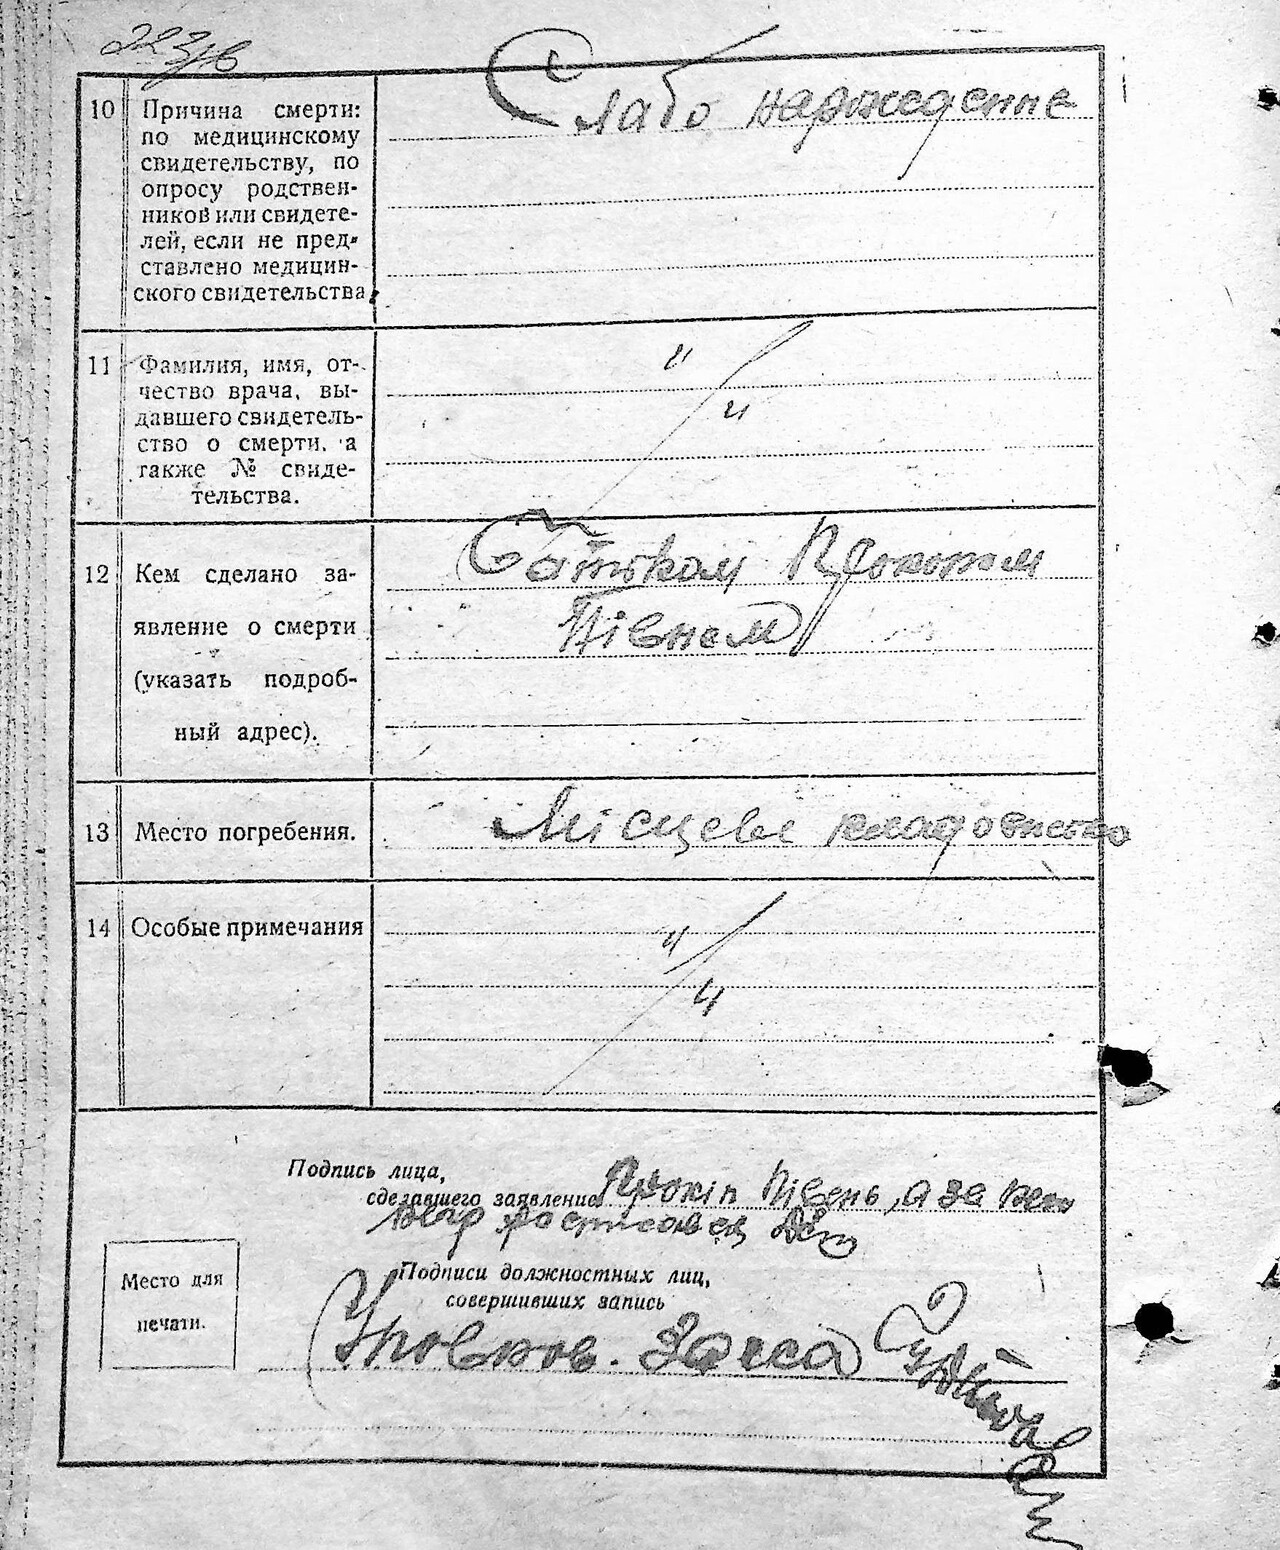 223зв
10 Причина смерти:
по медицинскому
свидетельству, по
опросу родствен-
ников или свидете-
лей, если не пред-
ставлено медицин-
ского свидетельства.
Слабо народжденне
11 Фамилия, имя, от-
чество врача, вы-
давшего свидетель-
ство о смерти, а
также № свиде-
тельства.
"
"
12 Кем сделано за-
явление о смерти
(указать подроб-
ный адрес).
Батьком Прокопом
Півнем
13 Место погребения.
Місцеве кладовисько
14 Особые примечания
"
"
Подпись лица,
сделавшего заявление Прокіп Півень, а за него
росписався
Подписи должностных лиц,
совершивших запись
Место для
печати.
Уповнов. Загса